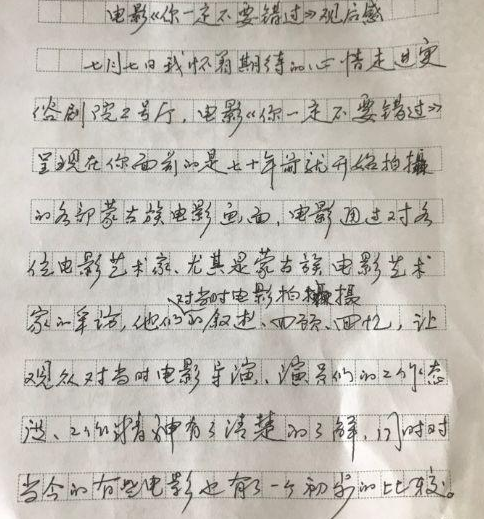 电影《你一定不要错过》观后感
七月七日我怀着期待的心情走进实
俗剧院2号厅，电影《你一定不要错过》
呈现在你面前的是七十年前就开始拍摄
的各部蒙古族电影画面，电影通过对各
位电影艺术家、尤其是蒙古族电影艺术
对当时电影拍摄
家的采访，他们的叙述、回顾、回忆，让
观众对当时电影导演、演员们的工作态
度、工作精神有了清楚的了解，同时对
当今的有些电影也有了一个初步的比较。